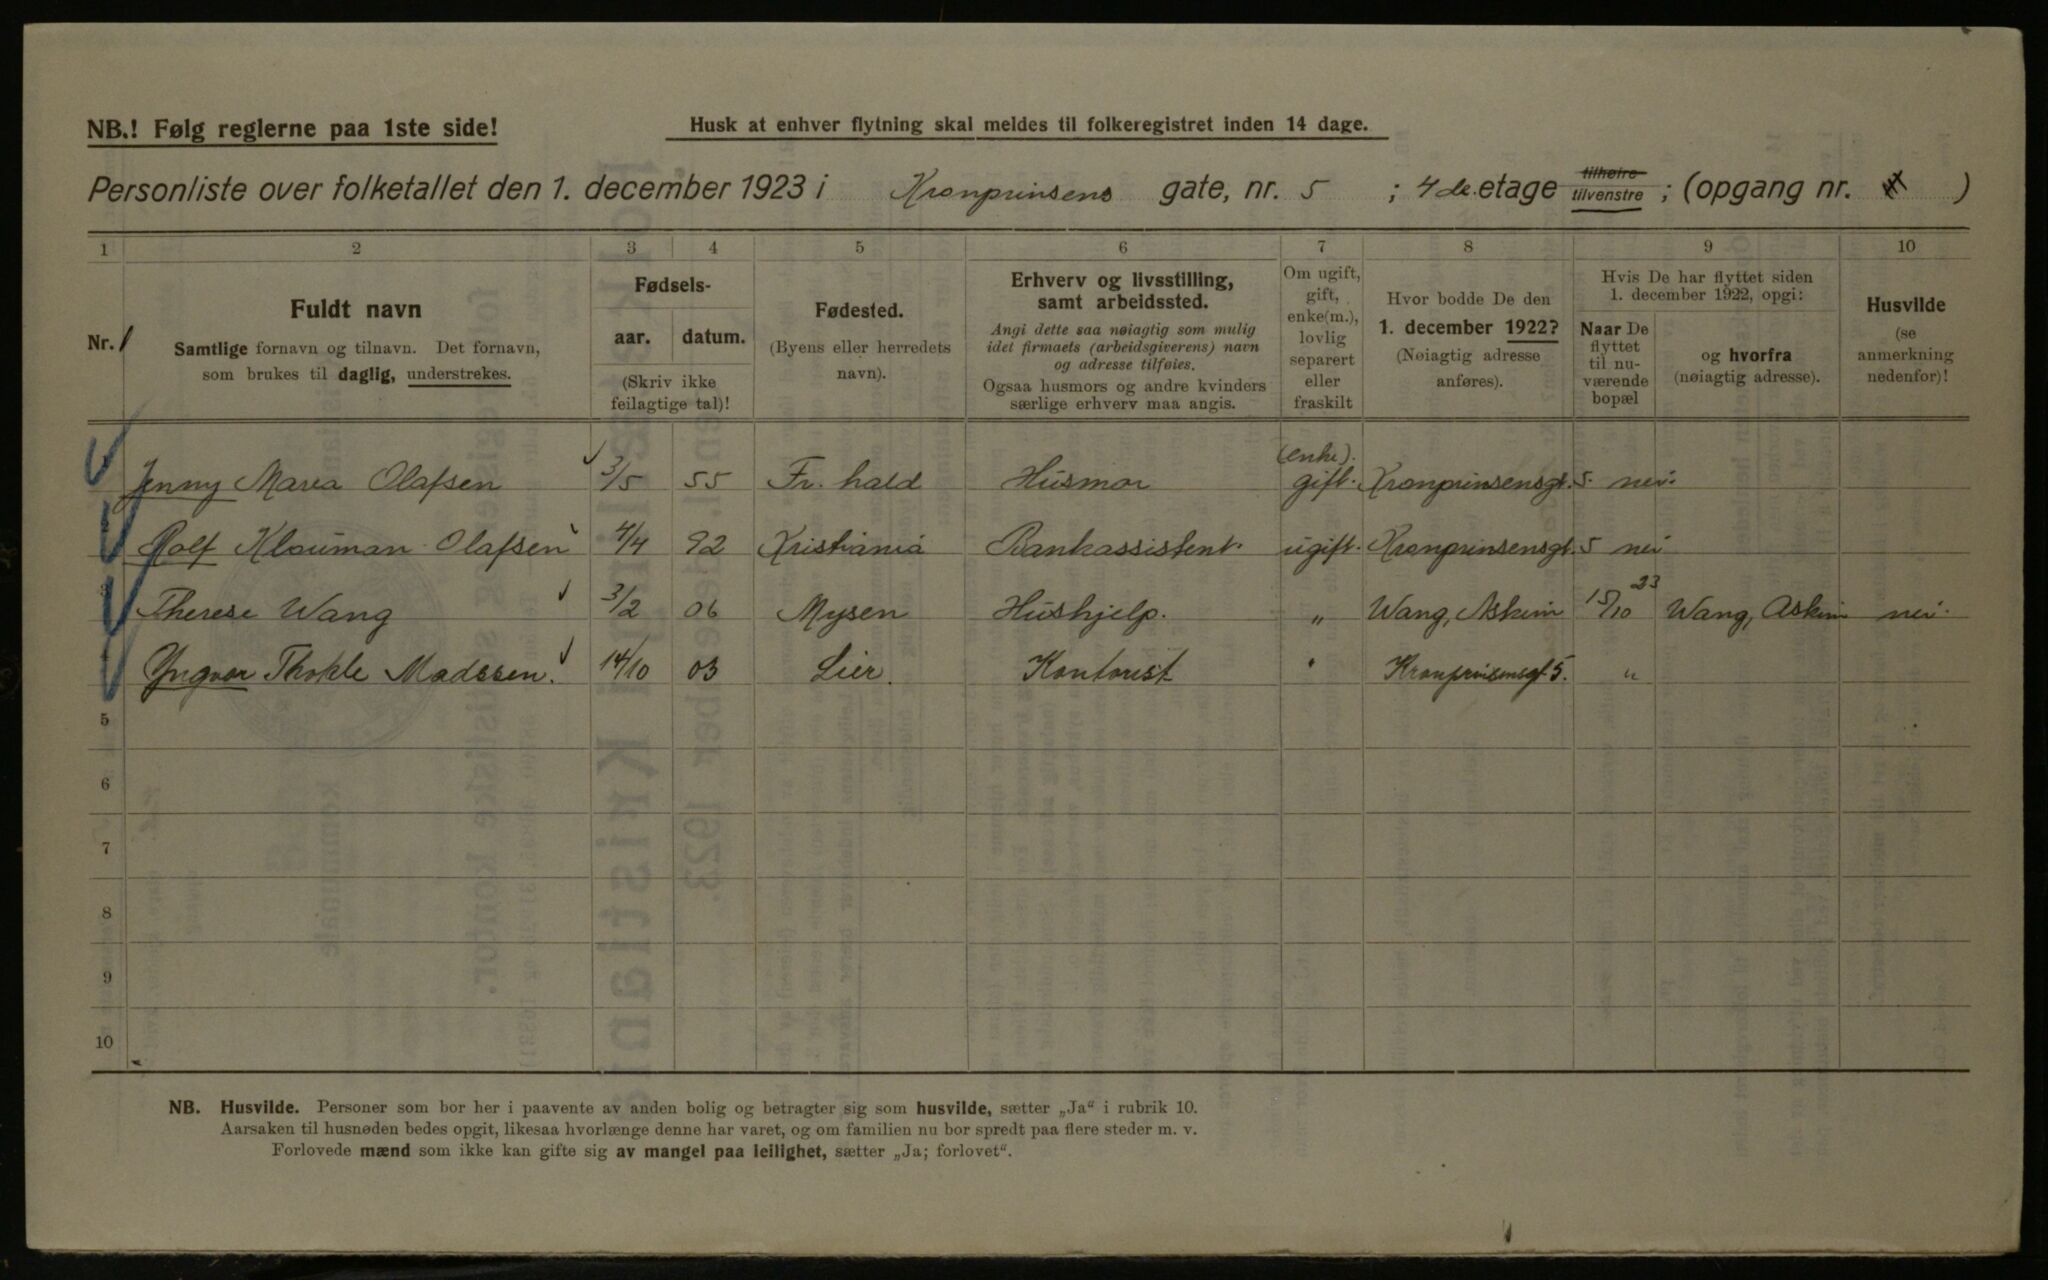 NB.! Følg reglerne paa 1ste side!
Husk at enhver flytning skal meldes til folkeregistret inden 14 dage.
Personliste over folketallet den 1. december 1923 i Kronprinsens gate, nr. 5 ; 4de. etage tilhøire tilvenstre ; (opgang nr. )
1 2 3 4 5 6 7 8 9 10
Nr. 1
Fuldt navn
Samtlige fornavn og tilnavn. Det fornavn,
som brukes til daglig, understrekes.
Fødsels-
aar. datum.
(Skriv ikke
feilagtige tal)!
Fødested.
(Byens eller herredets
navn).
Erhverv og livsstilling,
samt arbeidssted.
Angi dette saa nøiagtig som mulig
idet firmaets (arbeidsgiverens) navn
og adresse tilføies.
Ogsaa husmors og andre kvinders
særlige erhverv maa angis.
Om ugift,
gift,
enke(m.),
lovlig
separert
eller
fraskilt
Hvor bodde De den
1. december 1922?
(Nøiagtig adresse
anføres).
Hvis De har flyttet siden
1. december 1922, opgi:
Naar De
flyttet
til nu-
værende
bopæl
og hvorfra
(nøiagtig adresse).
Husvilde
(se
anmerkning
nedenfor)!
(enke).
Jenny Marea Olafsen 3/5 55 Fr. hald Husmor gift. Kronprinsensgt. 5. nei.
Rolf Klouman Olafsen 4/4 92 Kristiania Bankassistent. ugift. Kronprinsensgt. 5 nei
3 Therese Wang 3/2 06 Mysen Hushjelp. " Wang, Askim 15/10 23 Wang, Askim nei.
4 Yngvar Thokle Madssen. 14/10 03 Lier. Kontorist " Kronprinsensgt 5. "
5
6
7
8
9
10
NB. Husvilde. Personer som bor her i paavente av anden bolig og betragter sig som husvilde, sætter „Ja“ i rubrik 10.
Aarsaken til husnøden bedes opgit, likesaa hvorlænge denne har varet, og om familien nu bor spredt paa flere steder m. v.
Forlovede mænd som ikke kan gifte sig av mangel paa leilighet, sætter „Ja; forlovet“.